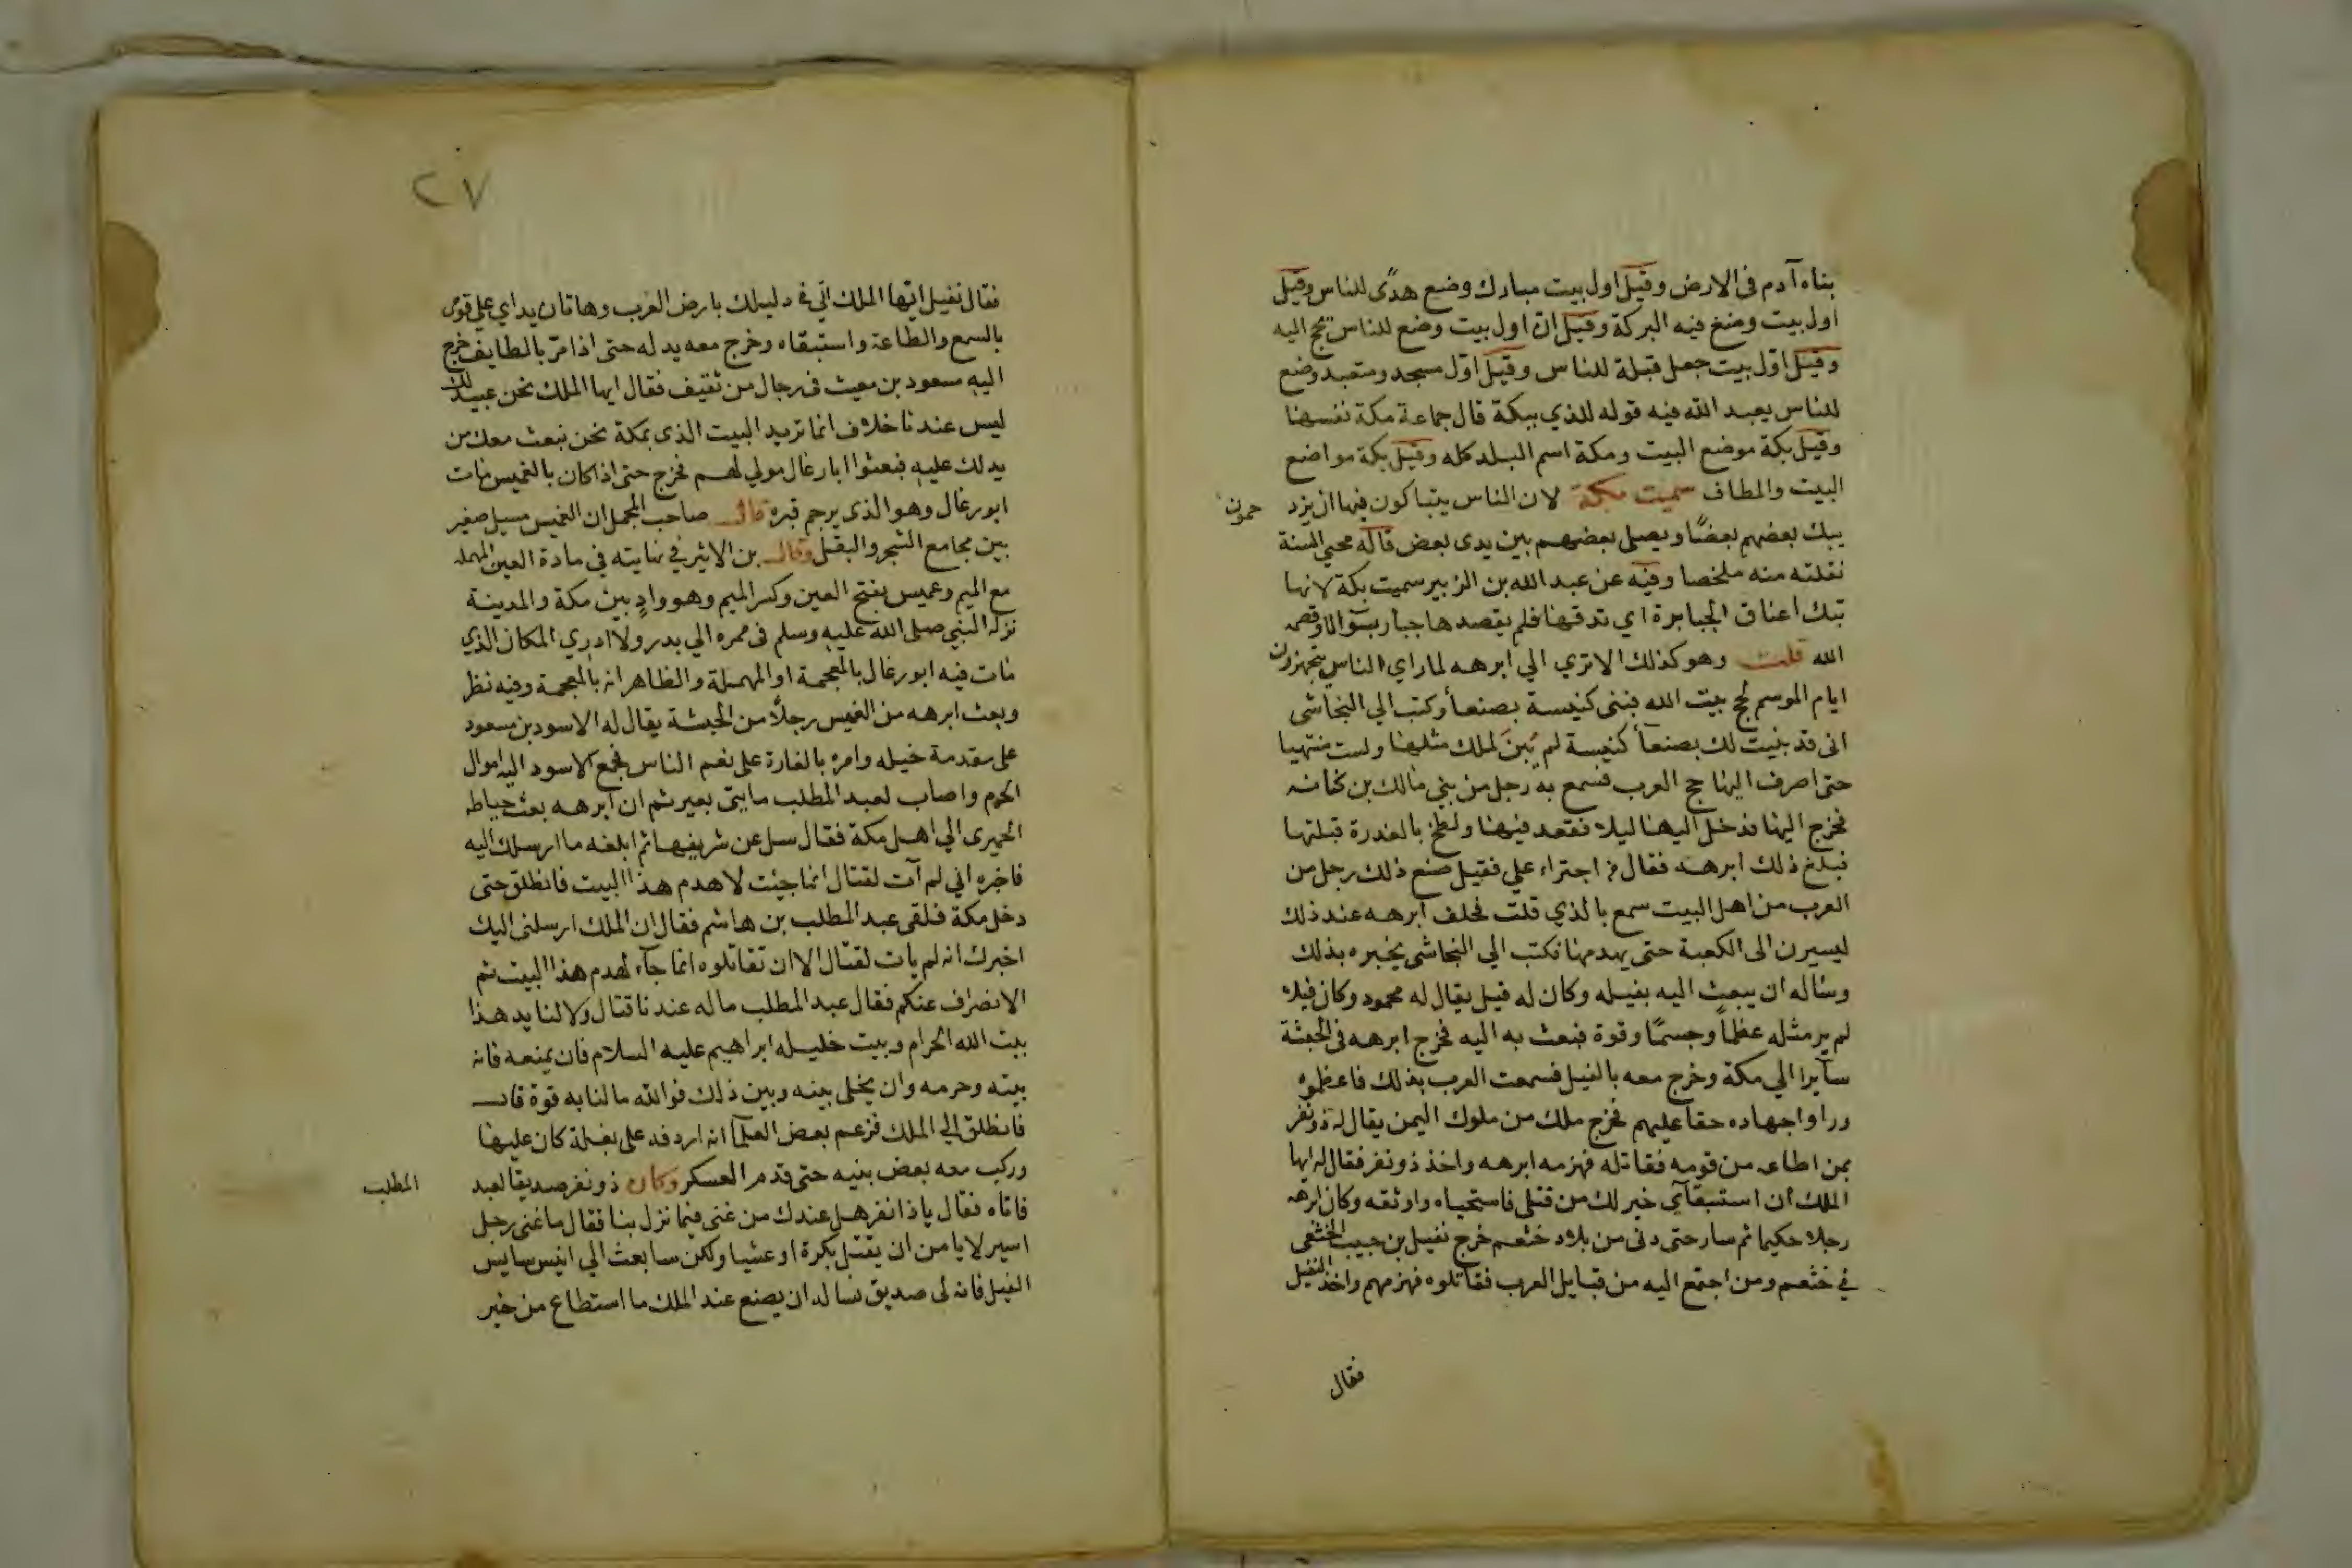 بناه آدم فى الارض وقيل اول بيت مبارك وضع هدًى للناس وقيل
اول بيت وضع فيه البركة وقيل ان اول بيت وضع للناس يحج اليه
وقيل اول بيت جعل قبلة للناس وقيل اول مسجد ومتعبد وضع
للناس يعبد الله فيه قوله للذي ببكة قال جماعة مكة نفسها
وقيل بكة موضع البيت ومكة اسم البلد كله وقيل بكة مواضع
البيت والمطاف سميت بكة لان الناس يتباكون فيها اى يزد
حمون
يبك بعضهم بعضًا ويصلى بعضهم بين يدى بعض قاله محيي السنة
نقلته منه ملخصا وفيه عن عبد الله بن الزبير سميت بكة لانها
تبك اعناق الجبابرة اي تدقها فلم يقصدها جبار بسوء الا وقصمه
الله قلت وهو كذلك الا تري الي ابرهه لما راي الناس يتجهزون
ايام الموسم لحج بيت الله فبنى كنيسة بصنعأ وكتب الي النجاشى
انى قد بنيت لك بصنعآ كنيسة لم يُبن لملك مثلها ولست منتهيا
حتى اصرف اليها حج العرب فسمع به رجل من بني مالك بن كنانه
فخرج اليها فدخل اليها ليلا فقعد فيها ولطخ بالعذرة قبلتها
فبلغ ذلك ابرهه فقال من اجتراء علي فقيل صنع ذلك رجل من
العرب من اهل البيت سمع بالذي قلت فحلف ابرهه عند ذلك
ليسيرن الى الكعبة حتى يهدمها فكتب الي النجاشى يخبره بذلك
وساله ان يبعث اليه بفيله وكان له فيل يقال له محمود وكان فيلا
لم ير مثله عظمًا وجسمًا وقوة فبعث به اليه فخرج ابرهه فى الحبشة
سآيرا الي مكة وخرج معه بالفيل فسمعت العرب بذلك فاعظموه
وراوا جهاده حقا عليهم فخرج ملك من ملوك اليمن يقال له ذو نفر
بمن اطاعه من قومه فقاتله فهزمه ابرهه واخذ ذو نفر فقال له ايها
الملك ان استبقآي خير لك من قتلى فاستحياه واوثقه وكان ابرهه
رجلا حكيما ثم سار حتى دنى من بلاد خثعم خرج نفيل بن حبيب الخثعمى
في خثعم ومن اجتمع اليه من قبايل العرب فقاتلوه فهزمهم واخذ النفيل
فقال
٢٧
فقال نفيل ايها الملك اني دليلك بارض العرب وهاتان يداي علي قومى
بالسمع والطاعة واستبقاه وخرج معه يدله حتى اذا مر بالطايف خرج
اليه مسعود بن معيث فى رجال من ثقيف فقال ايها الملك نحن عبيد لك
ليس عندنا خلاف انما تريد البيت الذى بمكة نحن نبعث معك من
يدلك عليه فبعثوا ابا رغال مولي لهم فخرج حتى اذا كان بالغميس مات
ابو رغال وهو الذى يرجم قبره قال صاحب المجمل ان الغميس مسيل صغير
بين مجامع الشجر والبقل وقال بن الاثير في نهايته في مادة العين المهمله
مع الميم وعميس بفتح العين وكسر الميم وهو وادٍ بين مكة والمدينة
نزله النبي صلى الله عليه وسلم فى ممره الي بدر ولا ادري المكان الذي
مات فيه ابو رغال بالمعجمة او المهملة والظاهر انه بالمعجمة وفيه نظر
وبعث ابرهه من الغميس رجلًا من الحبشة يقال له الاسود بن مسعود
على مقدمة خيله وامره بالغارة على نعم الناس فجمع الاسود اليه اموال
الحرم واصاب لعبد المطلب مايتى بعير ثم ان ابرهه بعث حياطه
الحميرى الي اهل مكة فقال سل عن شريفها ثم ابلغه ما ارسلك اليه
فاخبره اني لم آت لقتال انما جيت لاهدم هذا البيت فانطلق حتى
دخل مكة فلقى عبد المطلب بن هاشم فقال ان الملك ارسلنى اليك
اخبرك انه لم يات لقتال الا ان تقاتلوه انما جآء لهدم هذا البيت ثم
الانصراف عنكم فقال عبد المطلب ماله عندنا قتال ولا لنا يد هذا
بيت الله الحرام وبيت خليله ابراهيم عليه السلام فان يمنعه فانه
بيته وحرمه وان يخلى بينه وبين ذلك فوالله ما لنا به قوة قال
فانطلق الي الملك فزعم بعض العلمآ انه اردفه على بغلة كان عليها
وركب معه بعض بنيه حتى قدم العسكر وكان ذو نفر صديقا لعبد
المطلب
فاتاه فقال ياذا نفر هل عندك من غنى فيما نزل بنا فقال ما غنى رجل
اسير لا يامن ان يقتل بكرة او عشيا ولكن سابعث الي انيس سايس
الفيل فانه لى صديق نساله ان يصنع عند الملك ما استطاع من خير